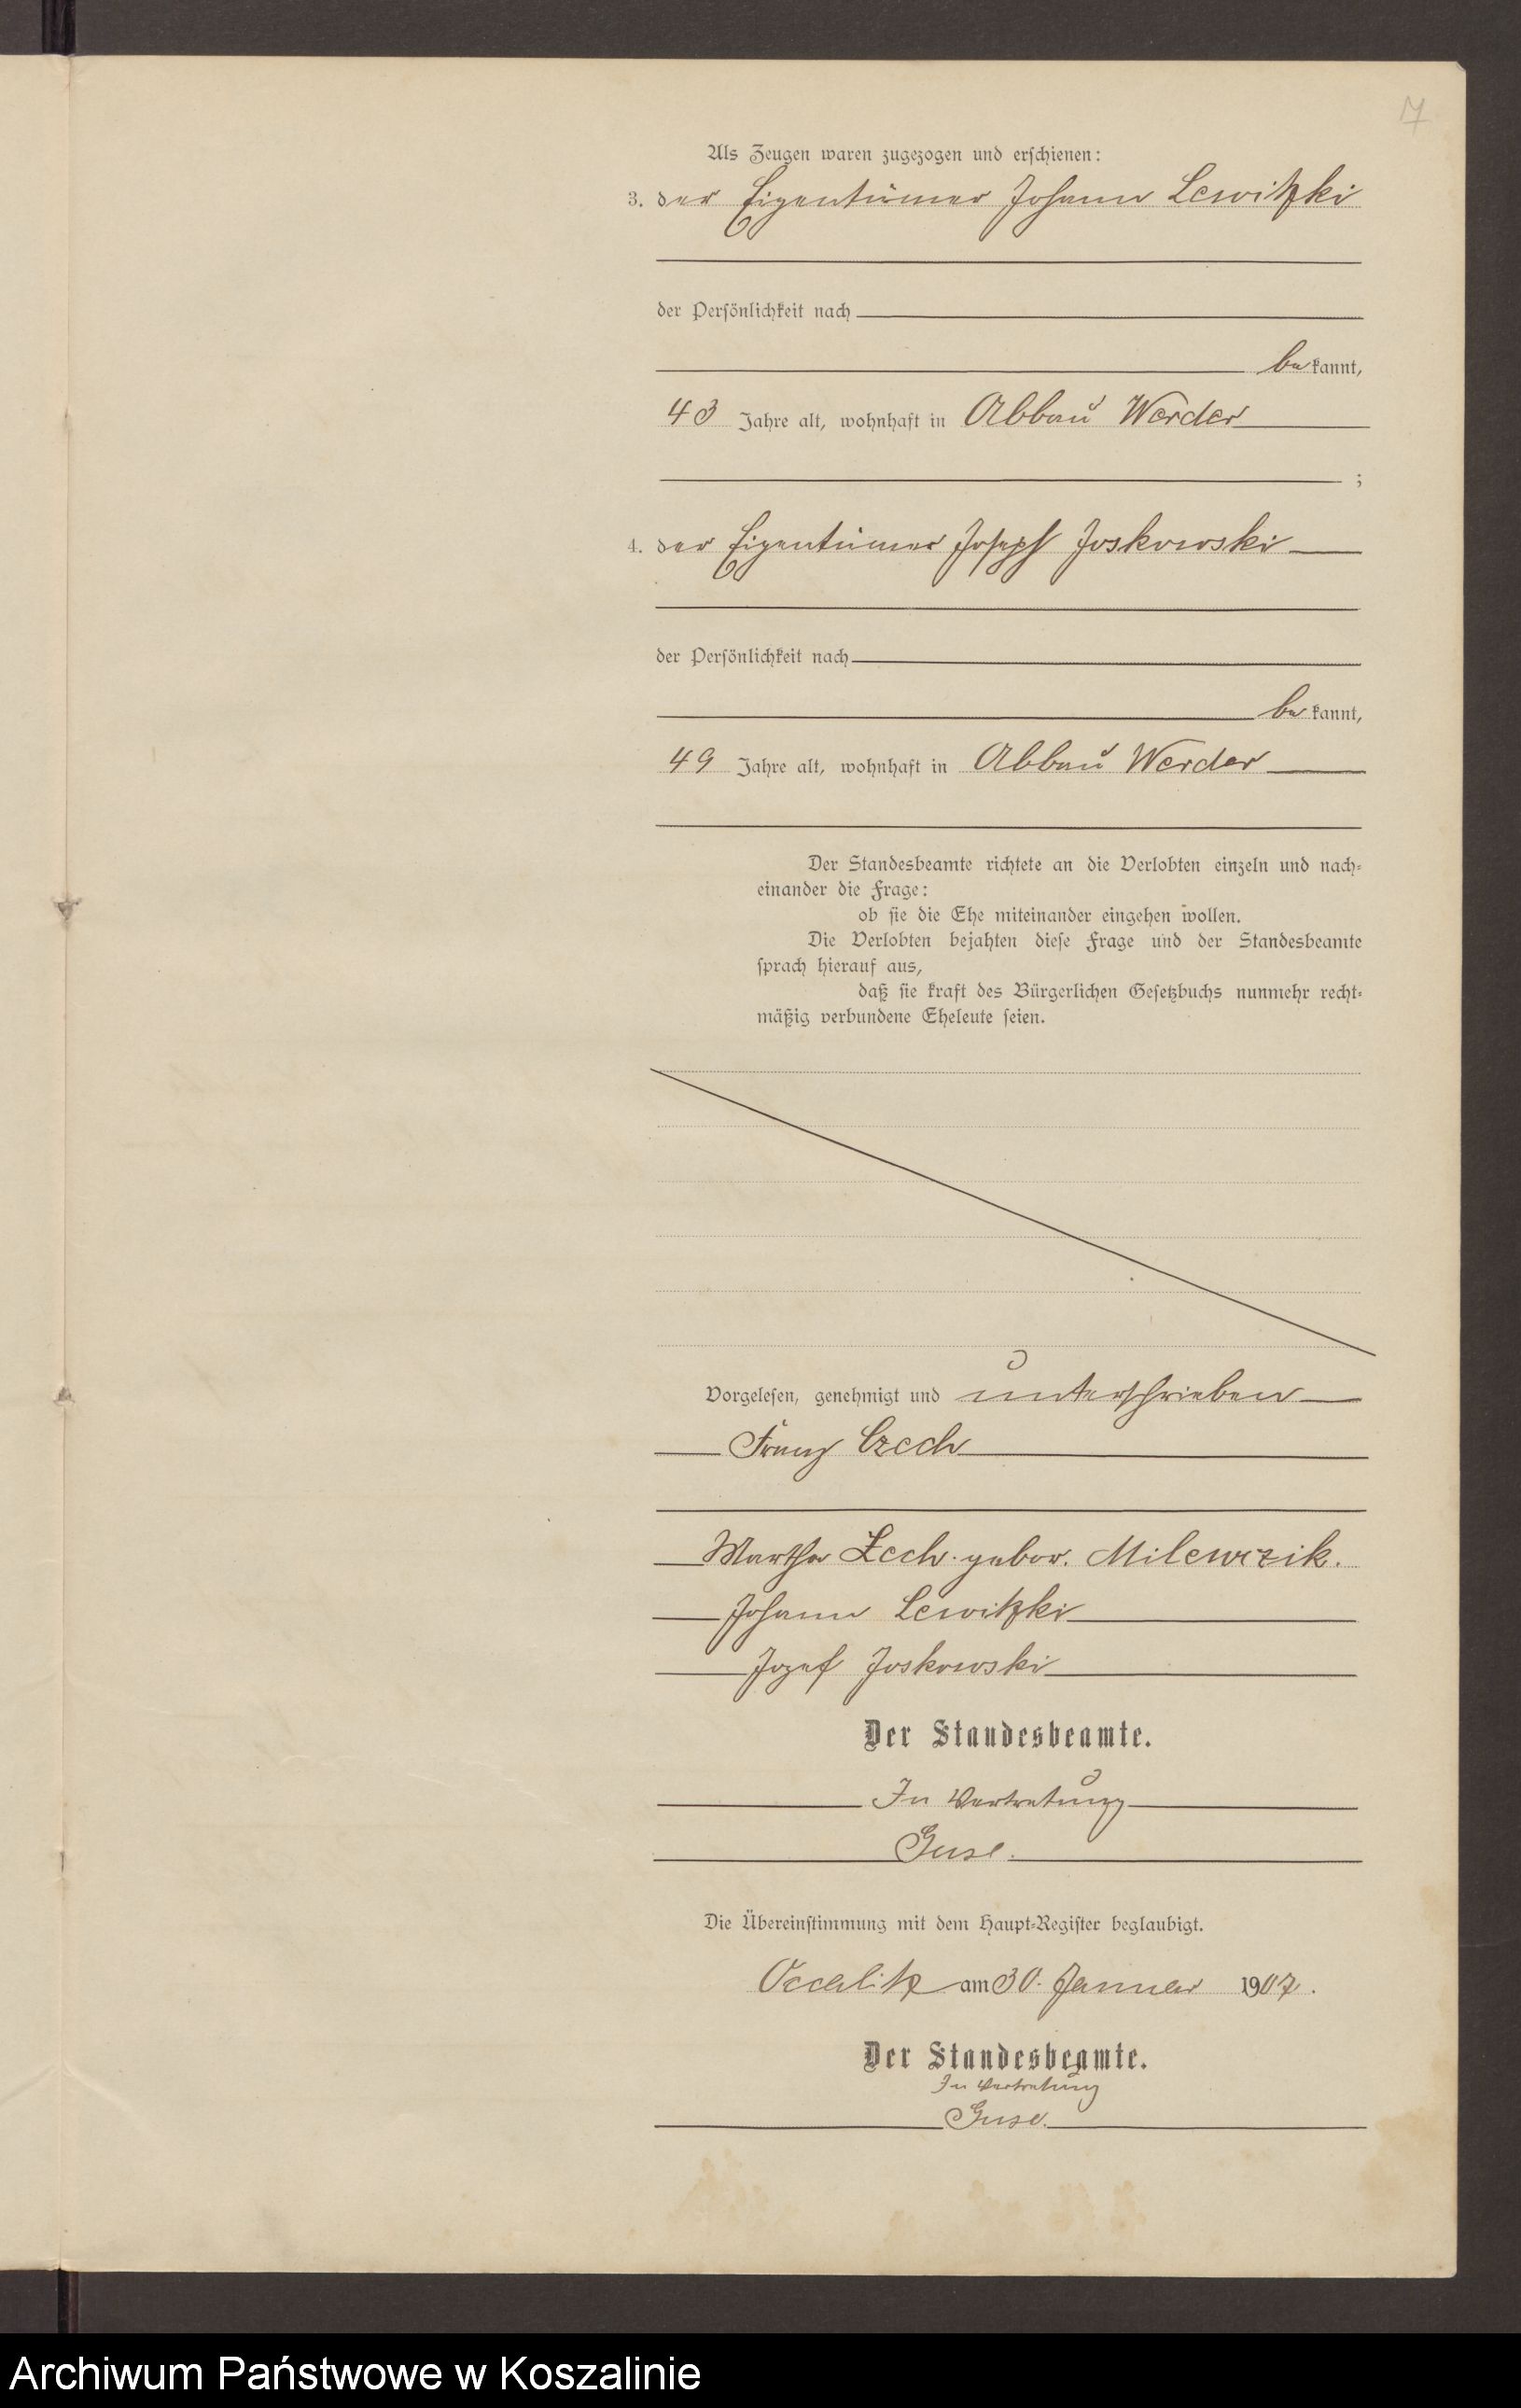 17
Als Zeugen waren zugezogen und erschienen:
3. der Eigentümer Johann Lewitzki
der Persönlichkeit nach
be kannt,
43 Jahre alt, wohnhaft in Abbau Werder
;
4. der Eigentümer Joseph Joskowski
der Persönlichkeit nach
be kannt,
49 Jahre alt, wohnhaft in Abbau Werder
Der Standesbeamte richtete an die Verlobten einzeln und nach-
einander die Frage:
ob sie die Ehe miteinander eingehen wollen.
Die Verlobten bejahten diese Frage und der Standesbeamte
sprach hierauf aus,
daß sie kraft des Bürgerlichen Gesetzbuchs nunmehr recht-
mäßig verbundene Eheleute seien.
Vorgelesen, genehmigt und unterschrieben
Franz Czech
Martha Zech gebor. Milewczik.
Johann Lewitzki
Jozef Joskowski
Der Standesbeamte.
In Vertretung
Guse.
Die Übereinstimmung mit dem Haupt-Register beglaubigt.
Oecalitz am 30. Januar 1907.
Der Standesbeamte.
In Vertretung
Guse.
Archiwum Państwowe w Koszalinie